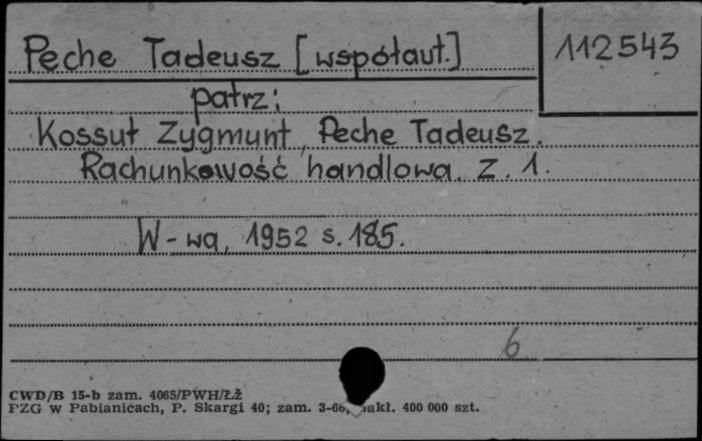 Peche Tadeusz [współaut.]
112543
patrz:
Kossut Zygmunt, Peche Tadeusz.
Rachunkowość handlowa. Z. 1.
W-wa, 1952 s. 185.
6
CWD/B 15-b zam. 4065/PWH/ŁŻ
PZG w Pabianicach, P. Skargi 40; zam. 3-66, nakł. 400 000 szt.